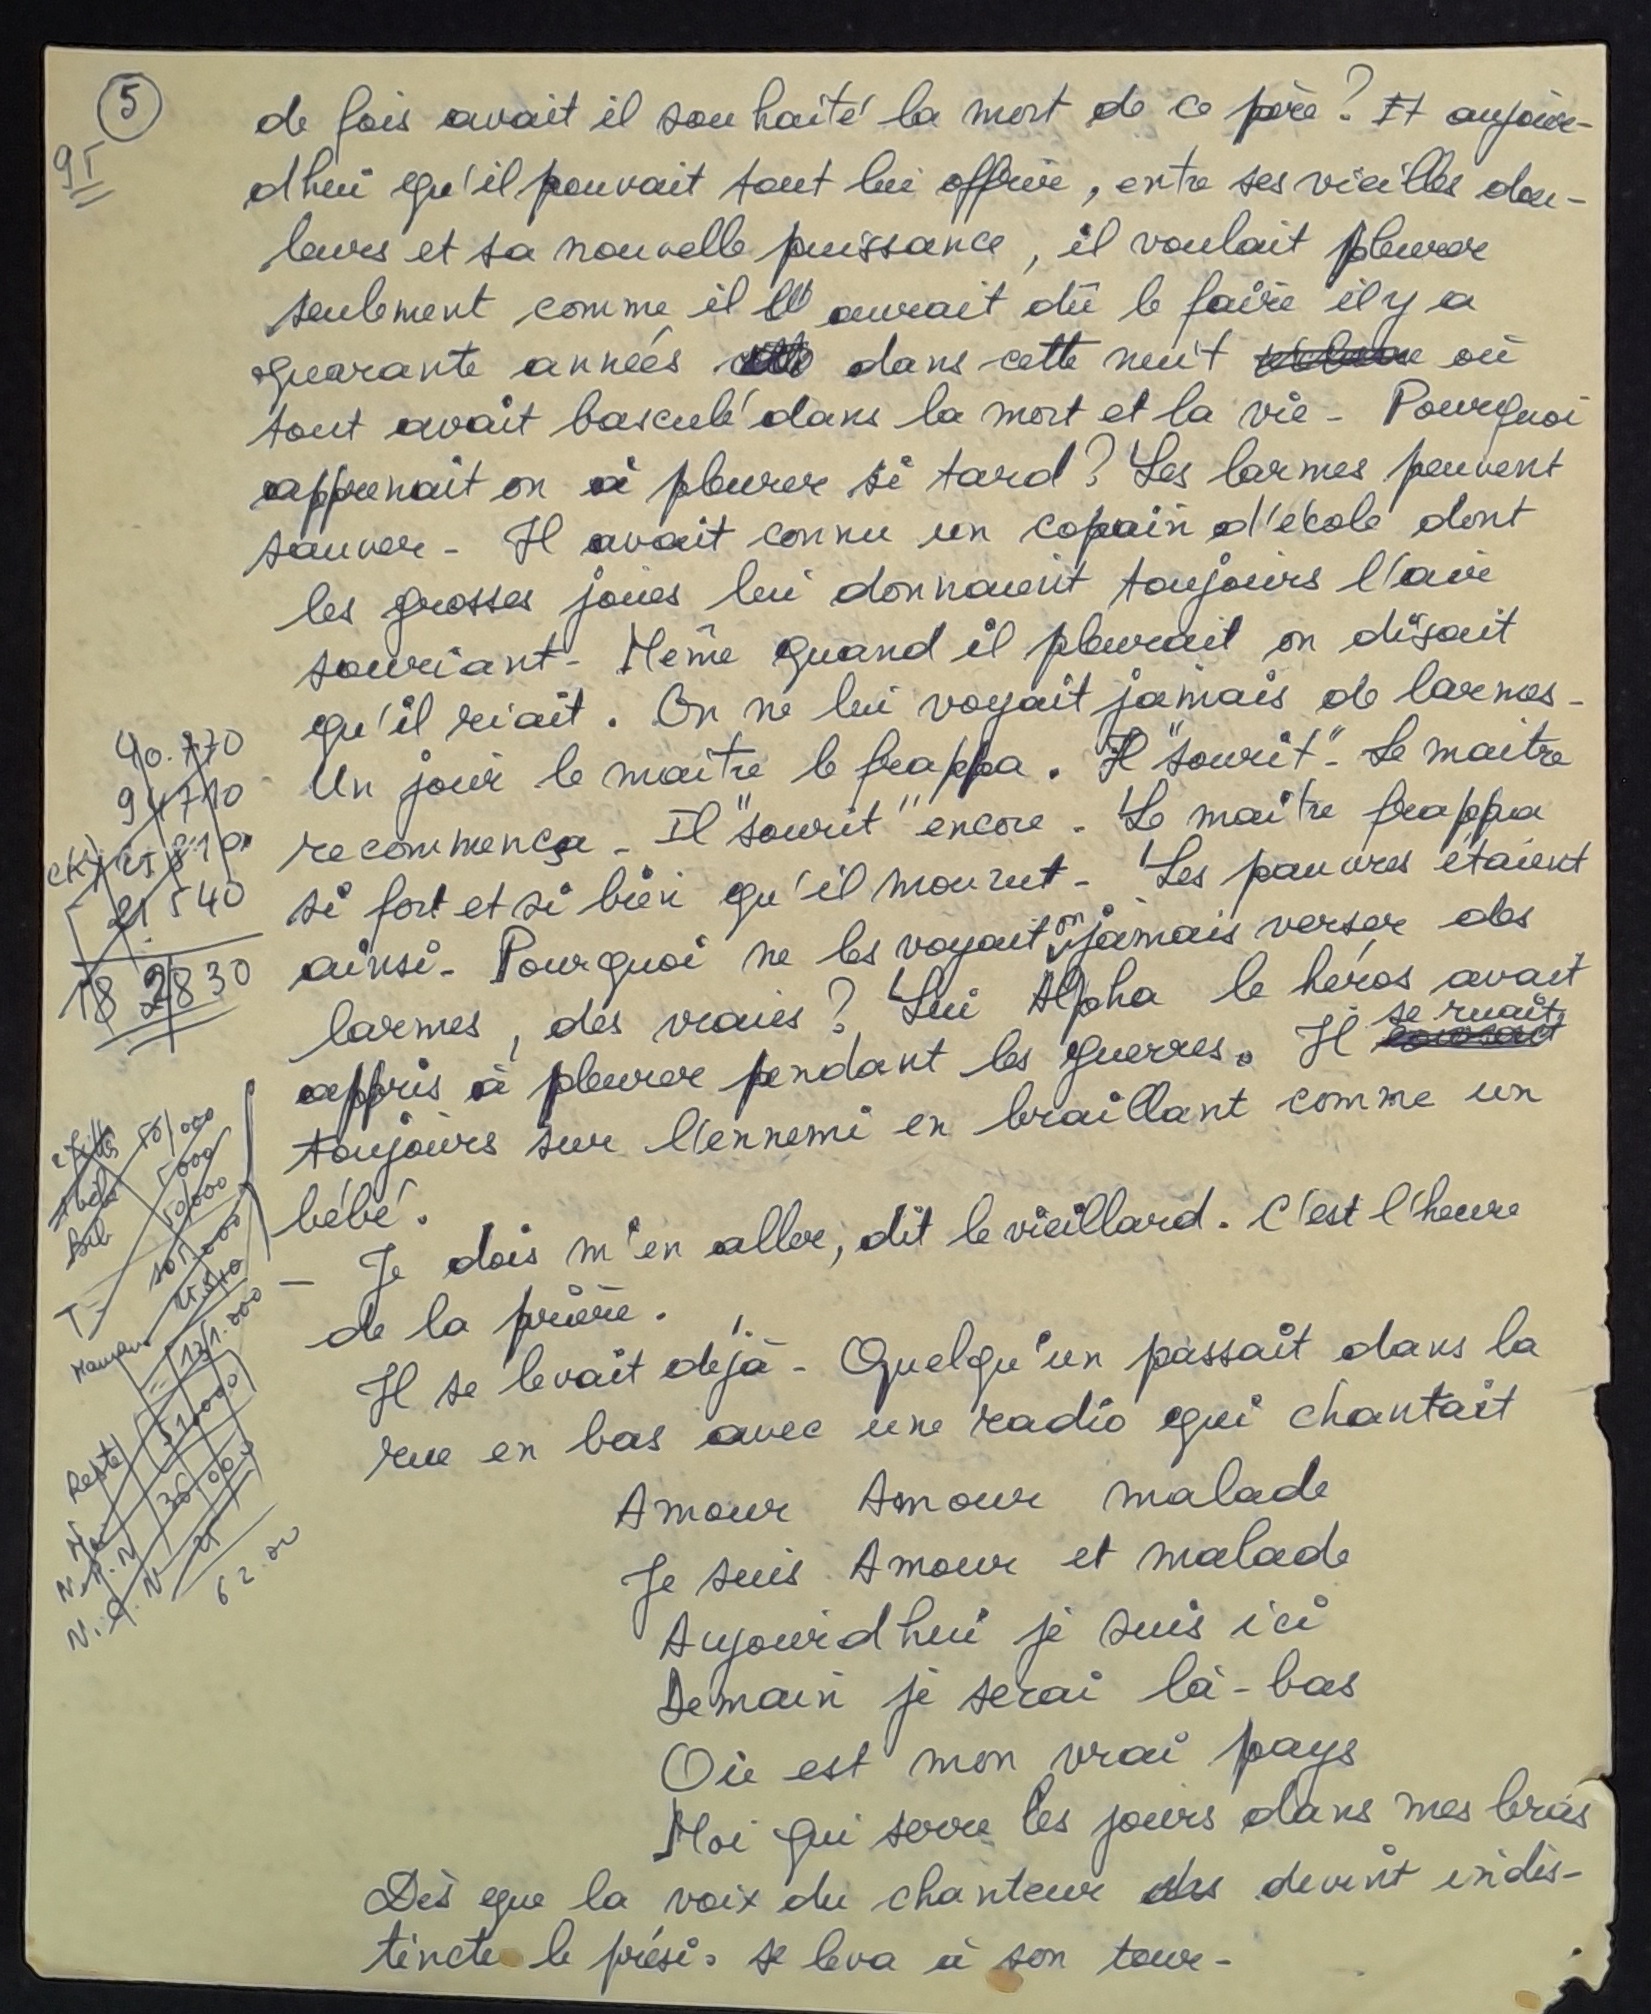 5
95
de fois avait il souhaité la mort de ce père? Et aujour-
dhui qu'il pouvait tout lui offrir, entre ses vieilles dou-
leurs et sa nouvelle puissance, il voulait pleurer
seulement comme il aurait dû le faire il y a
quarante années dans cette nuit où
tout avait basculé dans la mort et la vie - Pourquoi
apprenait on à pleurer si tard? Les larmes peuvent
sauver - Il avait connu un copain d'école dont
les grosses joues lui donnaient toujours l'air
souriant - Même quand il pleurait on disait
qu'il riait. On ne lui voyait jamais de larmes -
Un jour le maître le frappa. Il "sourit" - Le maitre
recommença - Il "sourit" encore - Le maître frappa
si fort et si bien qu'il mourut - Les pauvres étaient
ainsi - Pourquoi ne les voyait on jamais verser des
larmes, des vraies? Lui Alpha le héros avait
appris à pleurer pendant les guerres. Il se ruait
toujours sur l'ennemi en braillant comme un
bébé.
- Je dois m'en aller, dit le vieillard. C'est l'heure
de la prière.
Il se levait déjà - Quelqu'un passait dans la
rue en bas avec une radio qui chantait
Amour Amour malade
Je suis Amour et malade
Aujourdhui je suis ici
Demain je serai là-bas
Où est mon vrai pays
Moi qui serre les jours dans mes bras
Dès que la voix du chanteur devint indis-
tincte le prési. se leva à son tour -
40.770
94710
21540
182830
50000
5000
50000
105000
Maman
131.000
Reste
51000
36000
62.00